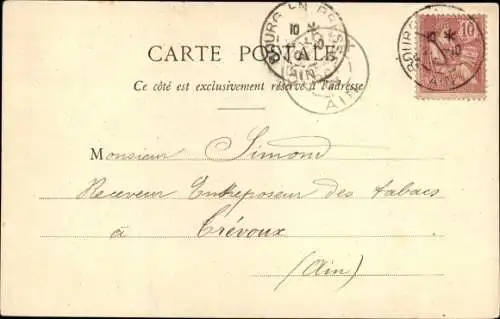 CARTE POSTALE
Ce côté est exclusivement réservé à l'adresse
10
BOURG EN BRESSE
10
AIN
AIN
BOURG
10
Monsieur Simond
Receveur Entreposeur des tabacs
à Trévoux
(Ain)